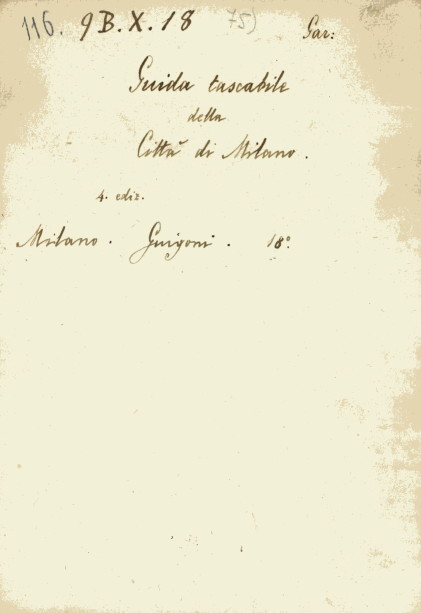 116. 9 B. X. 18 75) Gar:
Guida tascabile
della
Città di Milano.
4. ediz.
Milano. Guigoni. 18°.